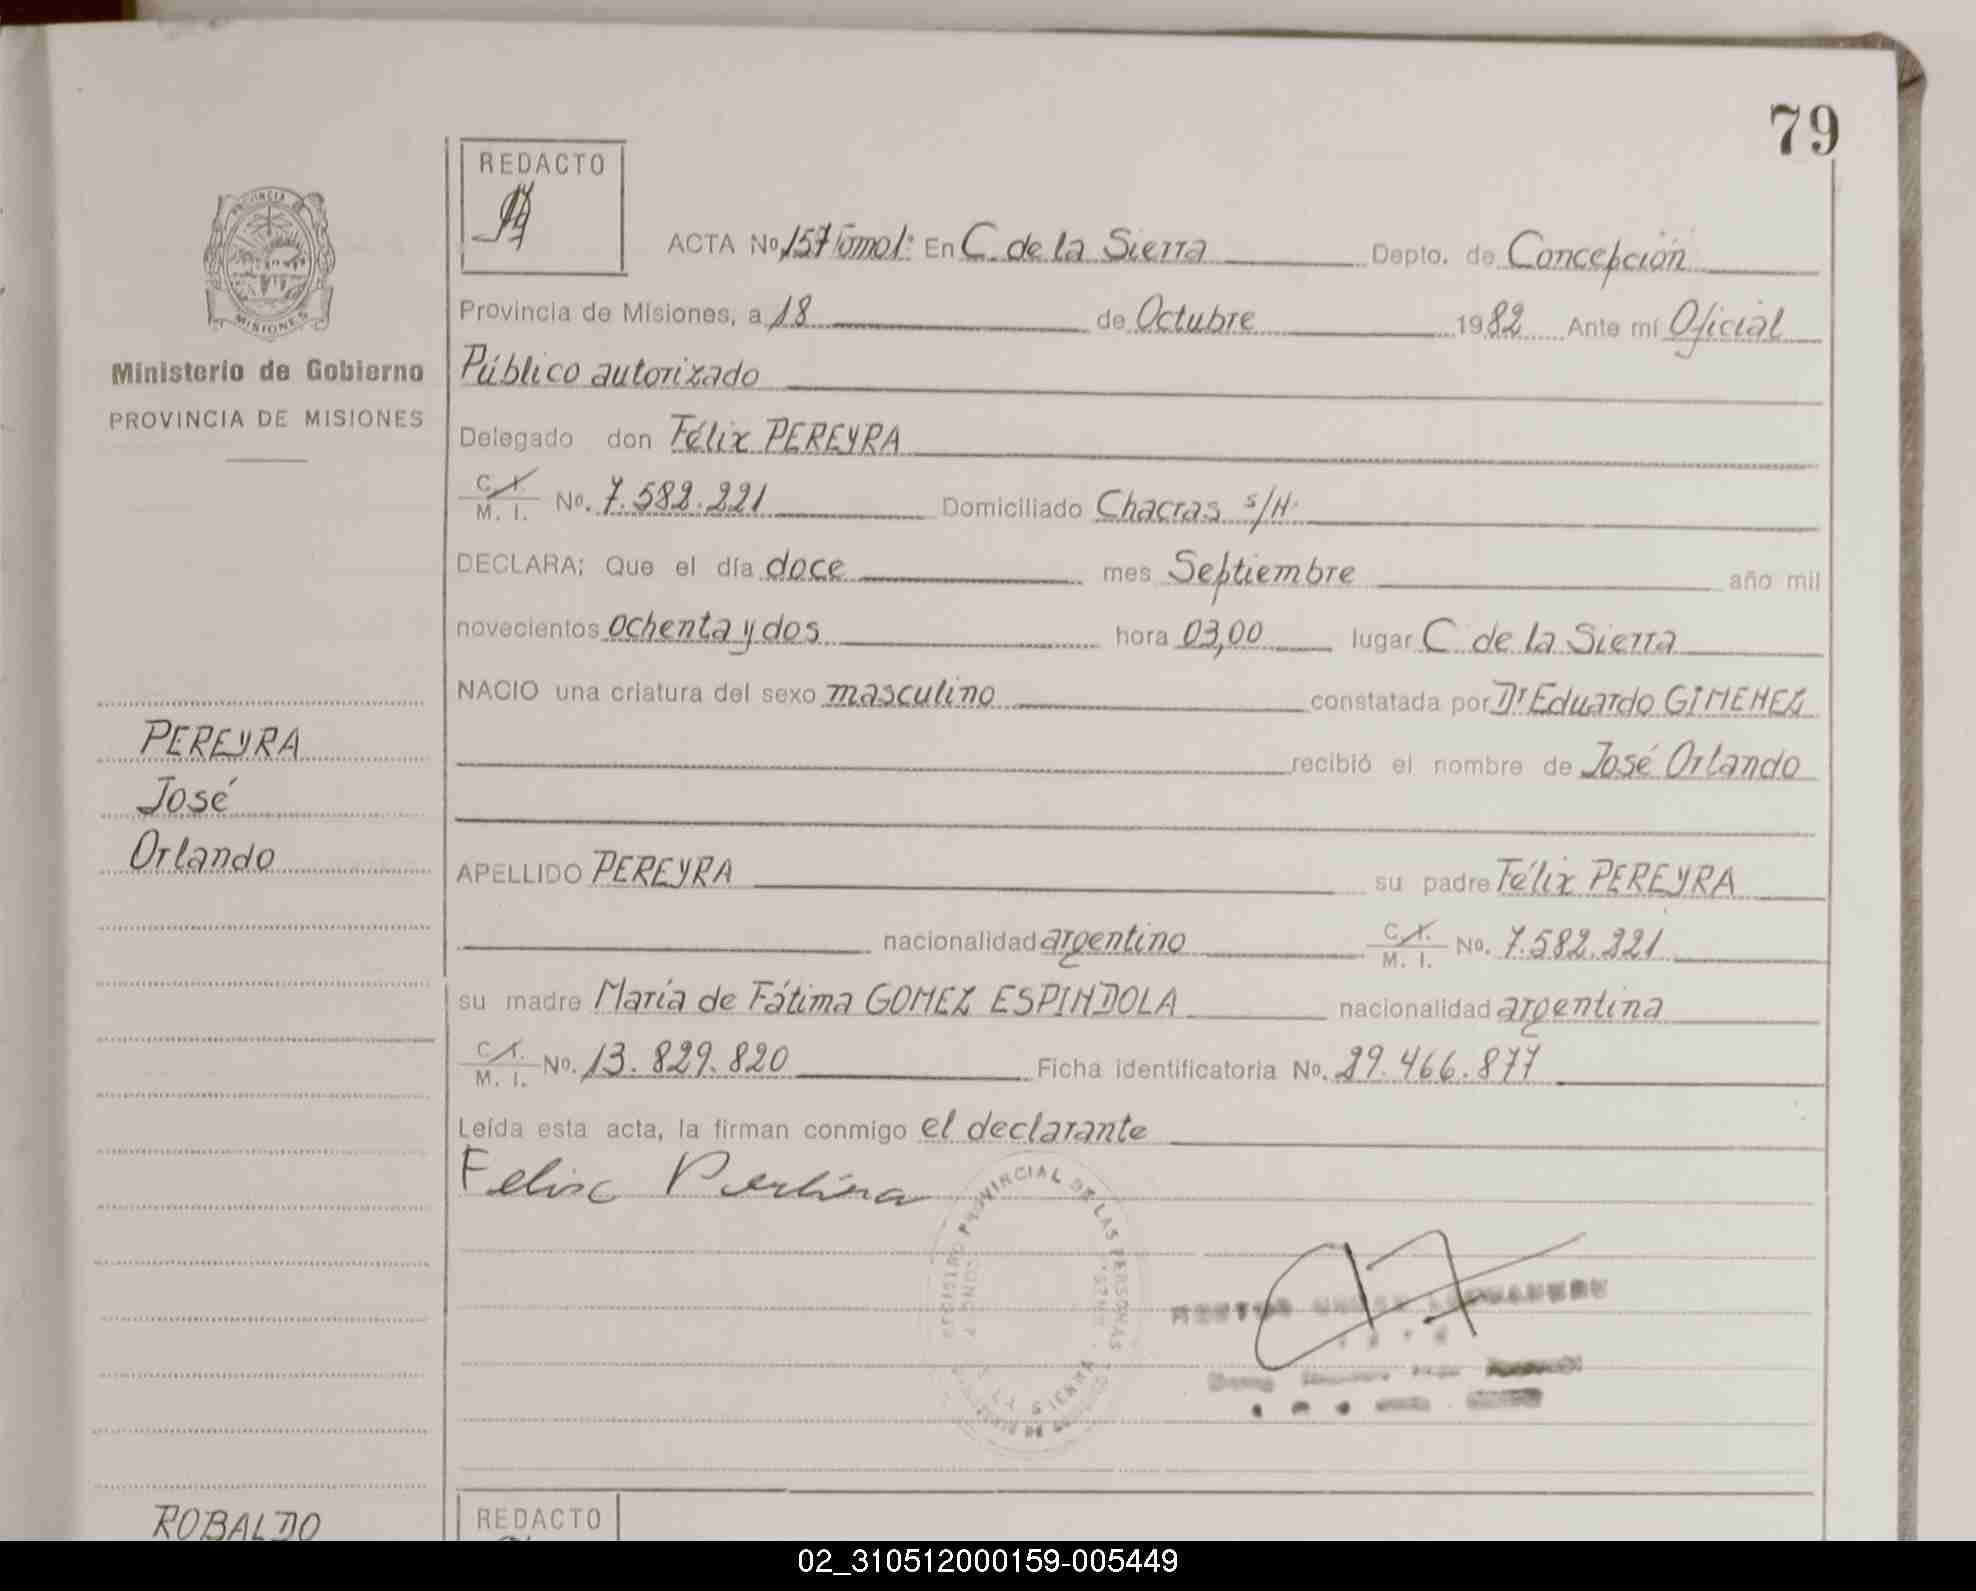 79
REDACTO
PROVINCIA DE
MISIONES
Ministerio de Gobierno
PROVINCIA DE MISIONES
ACTA No. 157 Tomo I: En C. de la Sierra Depto. de Concepción
Provincia de Misiones, a 18 de Octubre 1982 Ante mí Oficial
Público autorizado
Delegado don Félix PEREYRA
C. I. / M. I. No. 7.582.221 Domiciliado Chacras s/N.
DECLARA; Que el día doce mes Septiembre año mil
novecientos ochenta y dos hora 03,00 lugar C. de la Sierra
NACIO una criatura del sexo masculino constatada por Dr Eduardo GIMENEZ
recibió el nombre de José Orlando
PEREYRA
José
Orlando
APELLIDO PEREYRA su padre Félix PEREYRA
nacionalidad argentino C. I. / M. I. No. 7.582.221
su madre María de Fátima GOMEZ ESPINDOLA nacionalidad argentina
C. I. / M. I. No. 13.829.820 Ficha identificatoria No. 29.466.877
Leída esta acta, la firman conmigo el declarante
Felix
PROVINCIAL DE LAS PERSONAS
SIERRA
ROBALDO
REDACTO
02_310512000159-005449